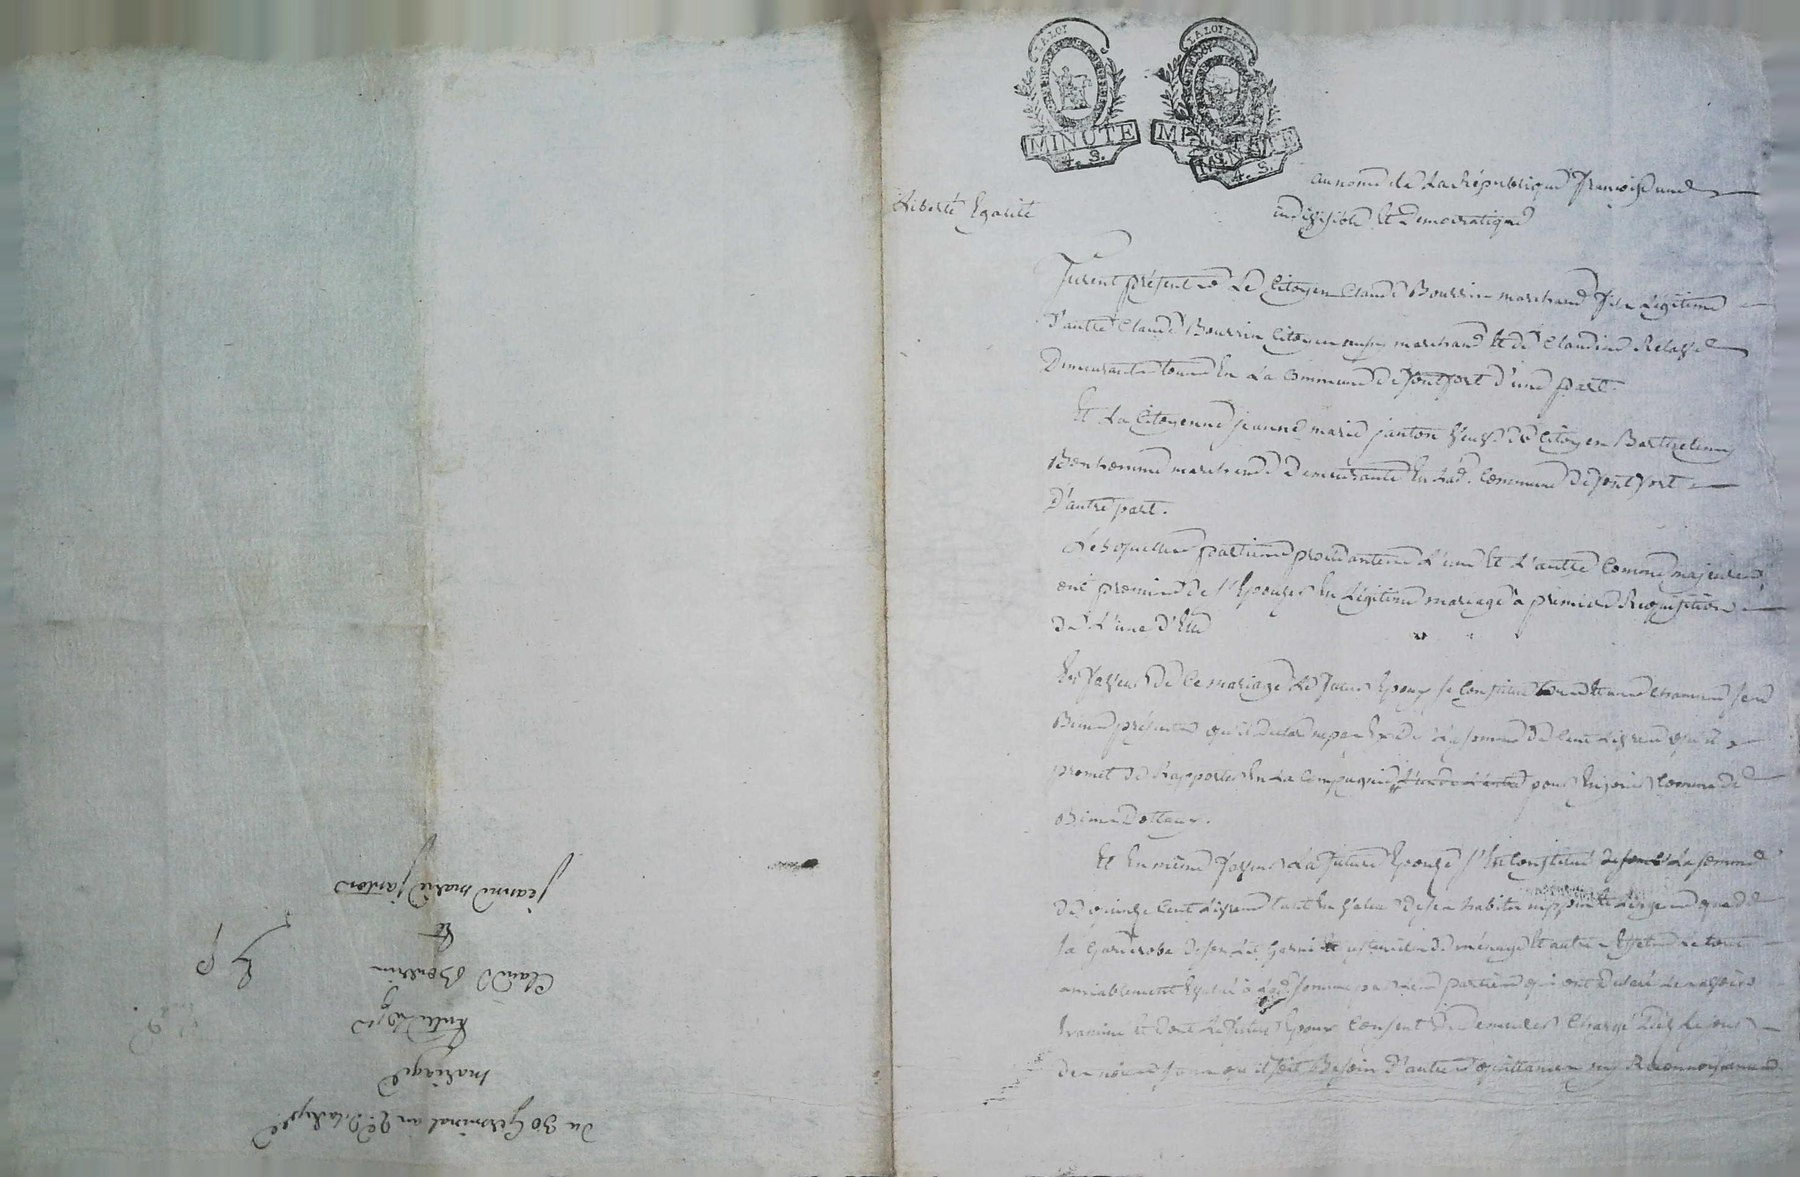 LA LOI
MINUTE
4. S.
LA LOI LE
MINUTE
4. S.
Liberté Egalité
au nom de La République françoise une
indivisible et Democratique
furent présents Le Citoyen Claude Bourrin marchand fils Légitime
d'autre Claude Bourrin Citoyen marchand et de Claudine
Demeurants tous En La Commune de fontfort d'une part.
Et La Citoyenne jeanne marie janton veuve de Citoyen Barthelemy
Bonhomme marchande Demeurante En Lad. Commune de fontfort
D'autre part.
Lesquelles parties procédantes L'une Et L'autre Comme majeures
ont promis de s'Epouser En Légitime mariage a première Requisition
de L'une d'Elles
En faveur de Ce mariage Le futur Epoux se Constitue tous ses
Biens présents La somme de Cent Livres qu'il
promet de Rapporter En La Compagnie pour En jouir Comme de
Biens dotaux.
Et En même faveur La future Epouse s'Est Constitué La somme
de quinze Cent Livres tant En valeur de ses habits nippes Et Linges que de
sa Garderobe de son Lit Garni Et ustenciles de ménage Et autres Effets Le tout
amiablement Evalué à Lad. somme par Les parties qui ont déclaré Le
Examiné Et Dont Le futur Epoux Consent de Demeurer Chargé Dès Le jour
des nôces sans qu'il soit Besoin d'autres quittances ny Reconnoissances
Du 30 Germinal an
mariage
Entre
Claude Bourrin
Et
jeanne marie janton